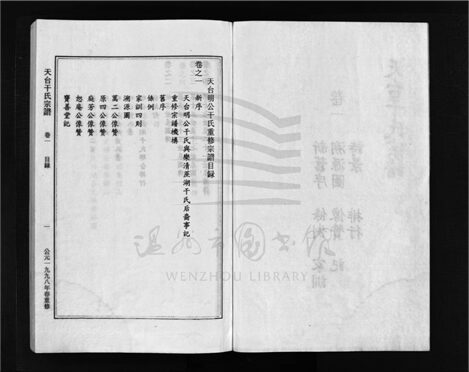 天台明公干氏重修宗譜目録
卷之一
新序
天台明公干氏與樂清巫湖干氏后裔事記
重修宗譜機構
舊序
條例
家訓四則
溯源圖
萬二公像贊
原四公像贊
庭芳公像贊
恕庵公像贊
寶善堂記
天台干氏宗譜
卷一
目録
一
公元一九九八年春重修
温州市图书馆
WENZHOU LIBRARY